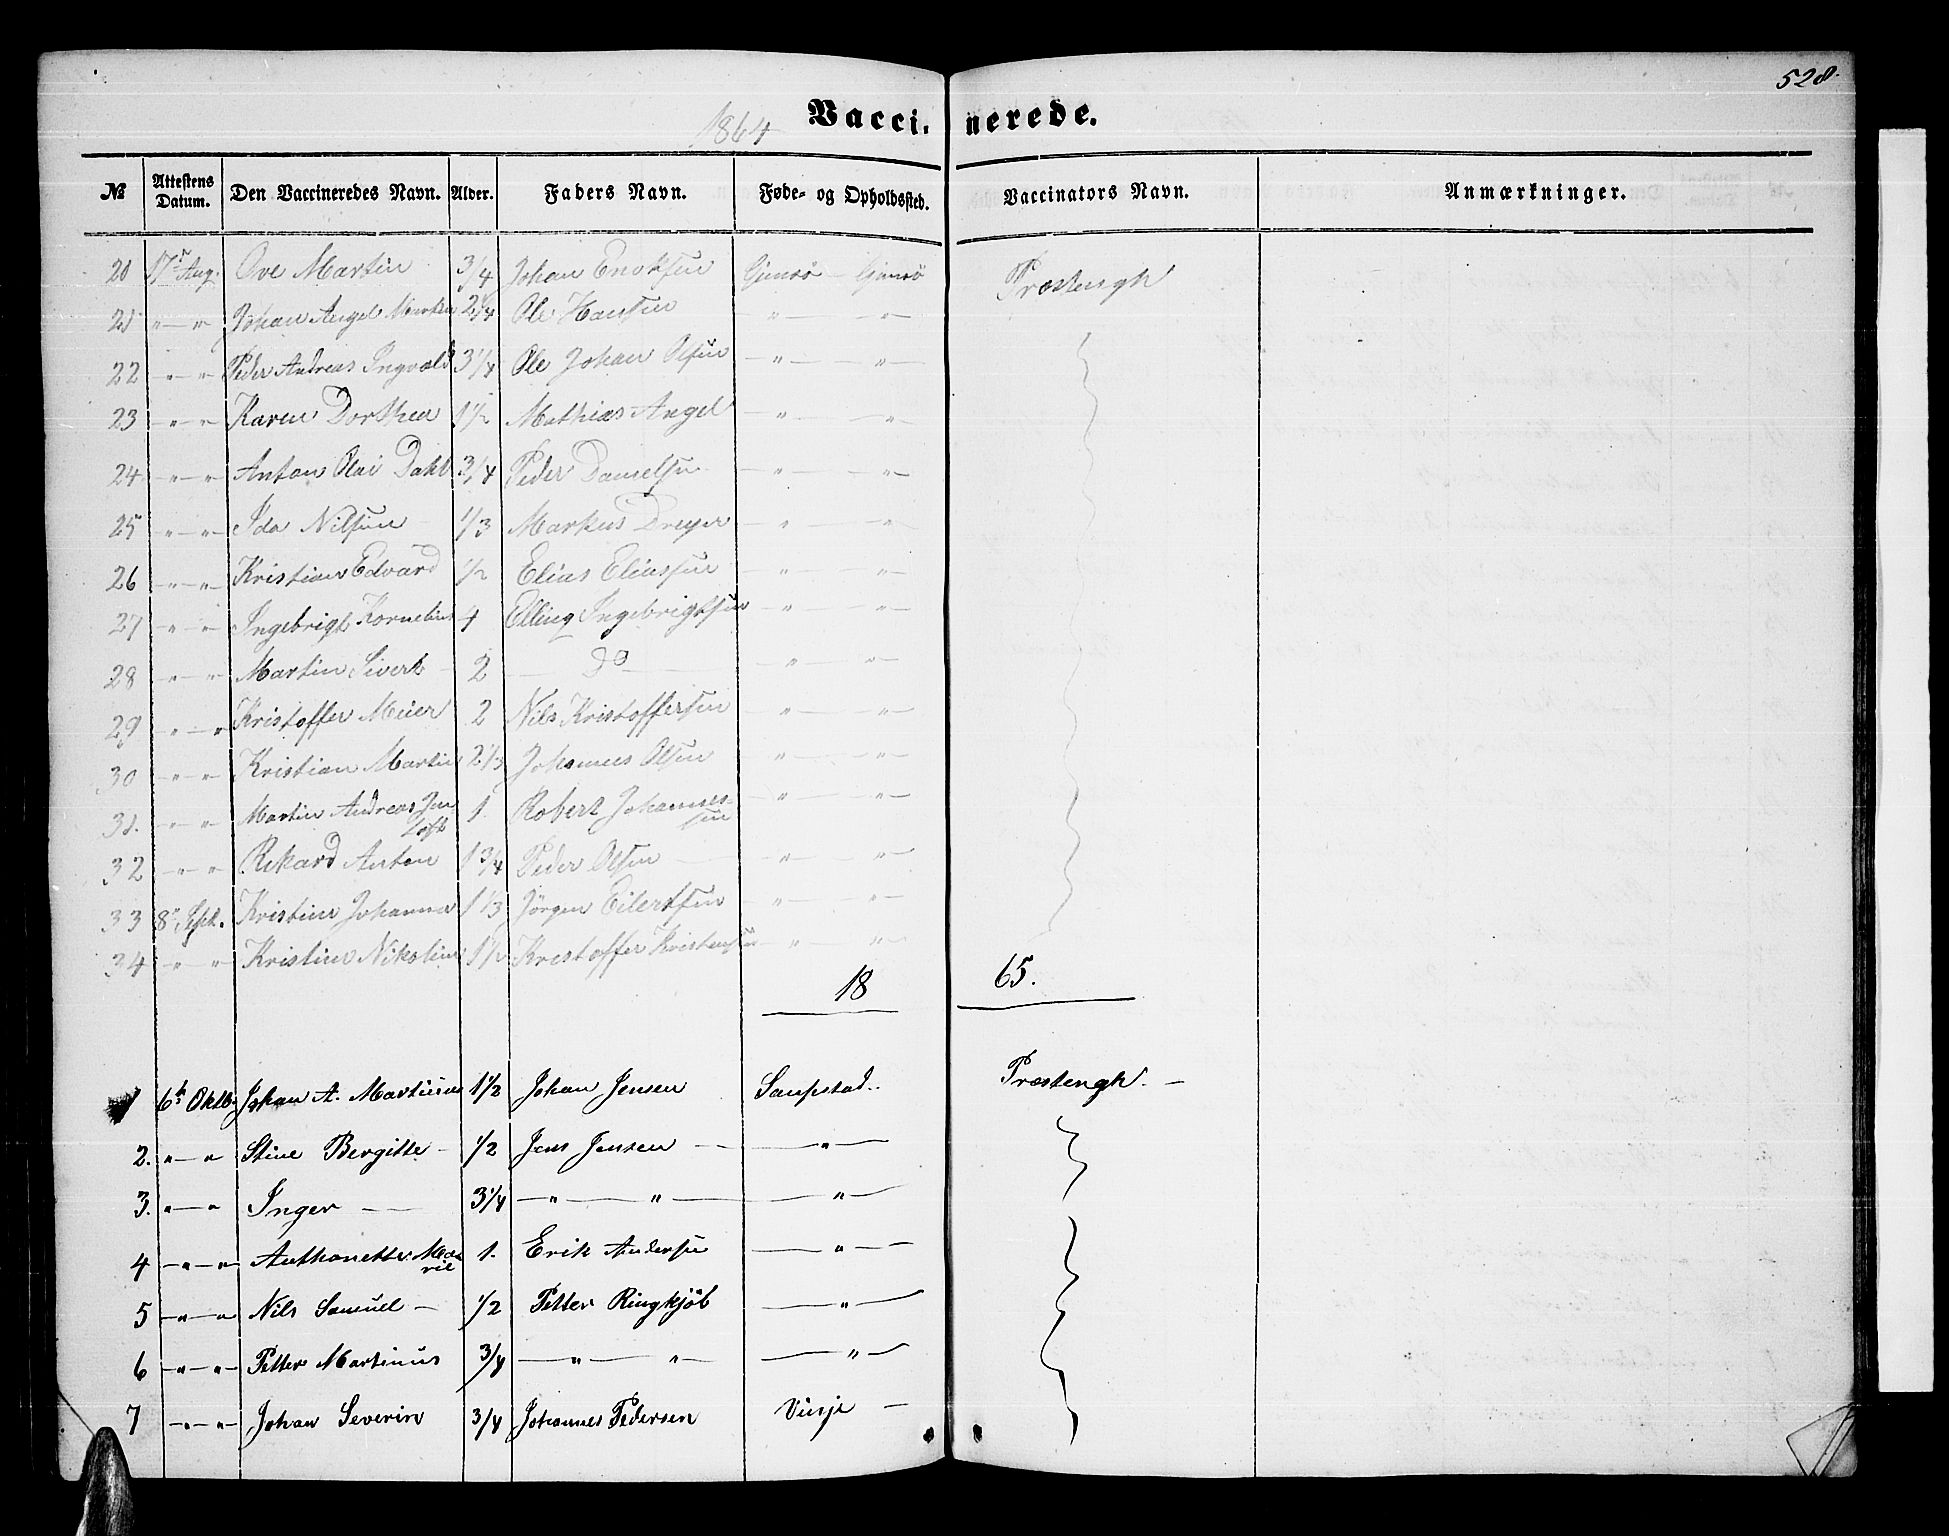 528.
1864
Vaccinerede.
№ Attestens Datum. Den Vaccineredes Navn. Alder. Faders Navn. Føde- og Opholdssted. Vaccinators Navn. Anmærkninger.
20 17 Aug. Ove Martin 3/4 Johan Enoksen Gimsø — Gimsø Præstengh
21 " — " Johan Angel 2 1/4 Ole Hansen " — "
22 " — " Peder Andreas Ingvald 3 1/4 Ole Johan Olsen — " — "
23 — " — " Karen Dorthea 1 1/2 Mathias Angel — " — " —
24 — " — " Anton Olai Dahl 3/4 Peder Danielsen — " — " —
25 — " — " Ida Nilsen 1/3 Markus Dreyer — " — " —
26 — " — " Kristian Edvard 1/2 Elias Eliassen — " — " —
27 — " — " Ingebrigt Kornelius 4 Elling Ingebrigtsen — " — " —
28 — " — " Martin Sivert — 2 — do — — " — " —
29 — " — " Kristoffer Meier 2 Nils Kristoffersen — " — " —
30 — " — " Kristian Martin 2 1/3 Johannes Olsen — " — " —
31. — " — " Martin Andreas Jen 1. Robert Johannes- — " — " —
Loft sen
32 — " — " Rikard Anton 1 3/4 Peder Olsen — — " — " —
33 8 Sept. Kristine Johanna 1 1/3 Jörgen Eilertsen — " — " —
34 — " — " Kristine Nikoline 1 1/2 Kristoffer Kristensen — " — " —
18 65.
1 6 Oktb. Johan A. Martinus 1 1/2 Johan Jensen Saupstad.. Præstengh. —
2. " — " Stine Bergitte — 1/2 Jens Jensen — — " —
3. " — " Inger — — 3 1/4 — " — " — — " —
4 — " — " Anthonette Ma 1. Erik Andersen — " —
rie
5 — " — " Nils Samuel — 1/2 Petter Ringkjöb — " —
6 — " — " — Petter Martinus 3/4 — " — " — — " —
7 — " — " — Johan Severin 3/4 Johannes Pedersen Vinje —